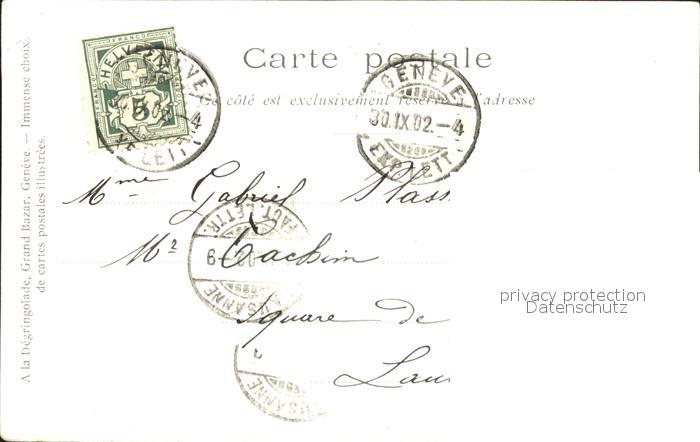 Carte postale
Ce côté est exclusivement réservé à l'adresse
HELVETIA
FRANCO
5
GENÈVE
30.IX.02.-4
EXP. LETT.
Mme Gabriel
Mr
Square de
Lau
FACT. LETTR.
LAUSANNE
USANNE
A la Dégringolade, Grand Bazar, Genève. — Immense choix
de cartes postales illustrées.
privacy protection
Datenschutz